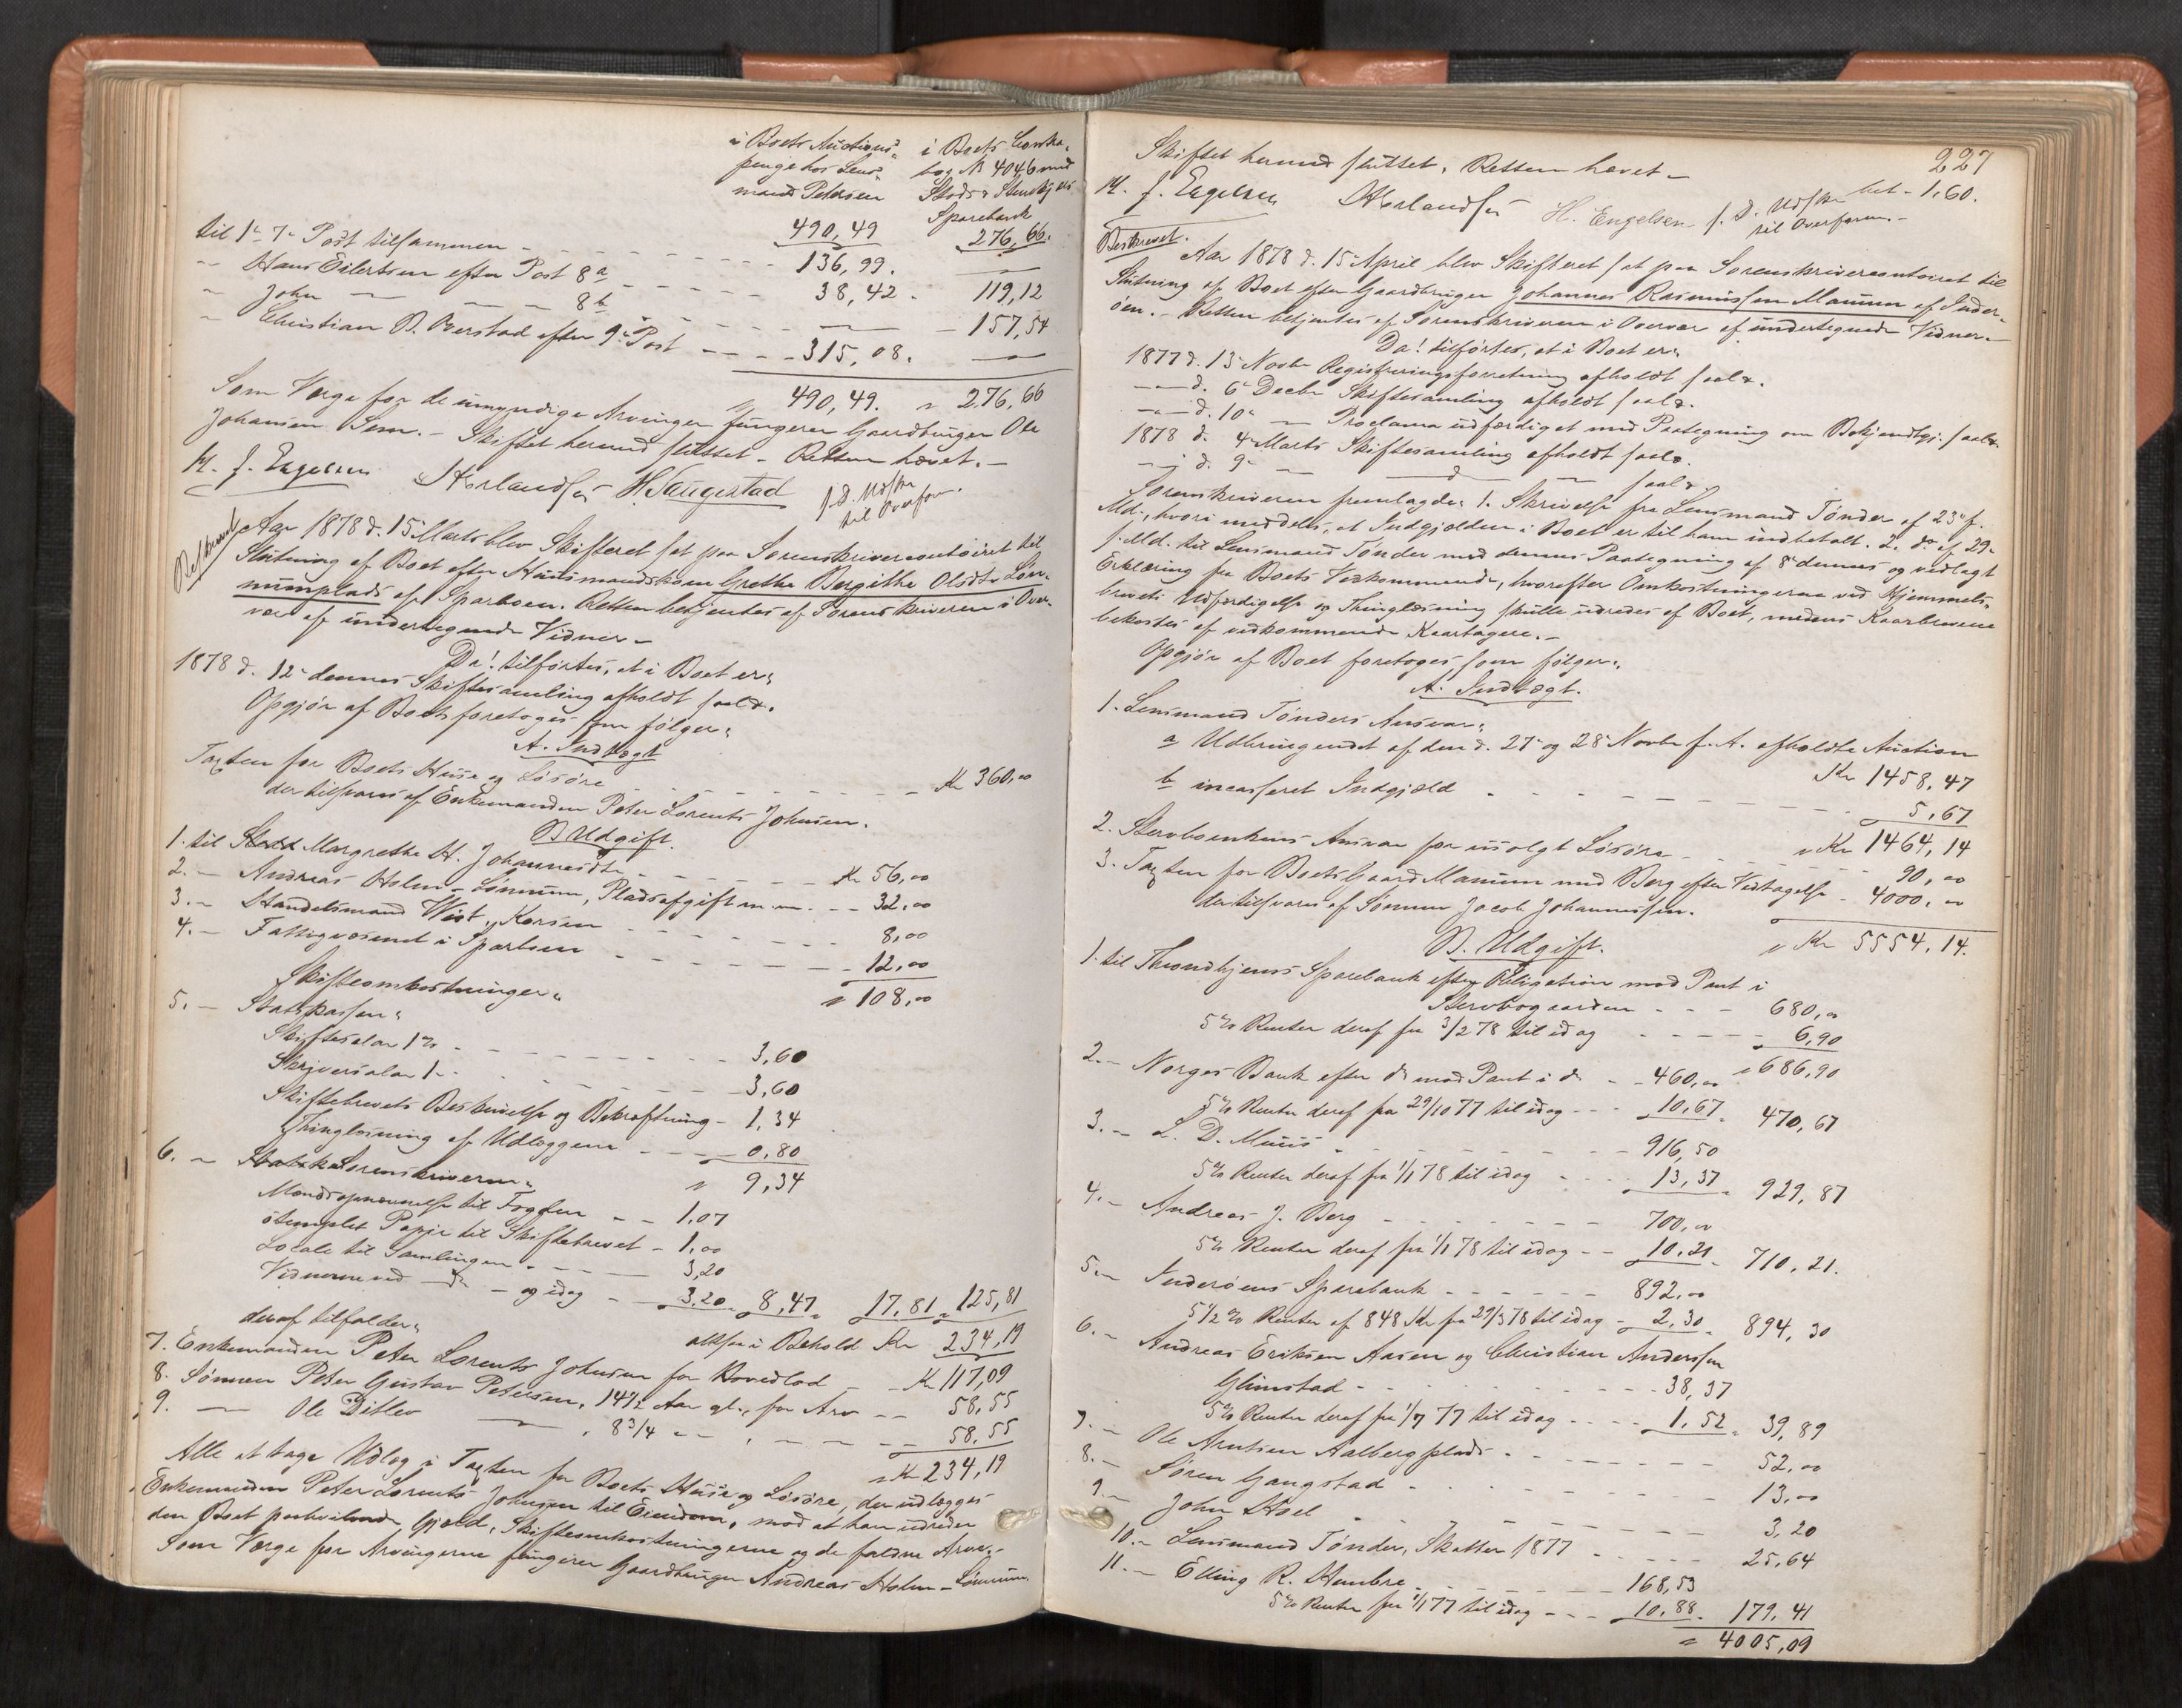 i Boets Auctions- i Boets Contra-
penge hos Lens- bog N 4046 med
mand Petersen Stods & Stenkjærs
Sparebank
til 1-7 Post tilsammen - 490,49 276,66.
" Hans Eilertsen efter Post 8a - 136,99. —
" John — — 8b - 38,42. 119,12
" Christian B. Overstad efter 9 Post — 157,54
315,08. —
490,49. " 276,66
Som Værge for de umyndige Arvinger fungerer Gaardbruger Ole
Johansen Sem. - Skiftet hermed sluttet - Retten hævet. -
M. J. Engelsen H. Saugestad f. d. Udskr.
til Overfor.
Beskrevet
Aar 1878 d. 15 Marts blev Skifteret sat paa Sorenskrivercontoiret til
Slutning af Boet efter Huusmandskone Grethe Bergithe Olsdtr Løn-
numplads af Sparboen. Retten betjentes af Sorenskriveren i Over-
vær af undertegnede Vidner -
Da! tilførtes, at i Boet er:
1878 d. 12 dennes Skiftesamling afholdt saal.
Opgjør af Boets foretoges som følger:
A. Indtægt
Taxten for Boets Huse og Løsøre - Kr 360,00
der tilsvares af Enkemanden Peter Lorents Johnsen.
B Udgift.
1. til Margrethe H. Johannesdtr - Kr 56,00
2. — Andreas Holm-Lønnum, Pladsafgift m. m. - 32,00
3. — Handelsmand Wist, Korsen - 8,00
4. — Fattigvæsenet i Sparboen - 12,00
Skifteomkostninger: " 108,00
5. — Statskassen:
Skiftesalær 1% - 3,60
Skriversalær 1 - 3,60
Skiftebrevets Beskrivelse og Bekræftning - 1,34
Thinglæsning af Udlæggene - 0,80
6. — Sorenskriveren: " 9,34
Mandsopnævnelse til Fogden - 1,07
stemplet Papir til Skiftebrevet - 1,00
Locale til Samlingen - 3,20
Vidnerne ved do - og idag - 3,20 8,47 17,81 125,81
altsaa i Behold Kr 234,19
deraf tilfalder:
7. Enkemanden Peter Lorents Johnsen for Hovedlod - Kr 117,09
8. Sønnen Peter Gustav Petersen, 14 1/2 Aar gl., for Arv - 58,55
9. — Ole Ditlev — , 8 3/4 - - 58,55
" Kr 234,19
Alle at tage Udlæg i Taxten for Boets Huse og Løsøre, der udlægges
Enkemanden Peter Lorents Johnsen til Eiendom, mod at han udreder
den Boet paahvilende Gjæld, Skifteomkostningerne og de faldne Arve. -
Som Værge for Arvingerne fungerer Gaardbruger Andreas Holm-Lønnum
227
Skiftet hermed sluttet. Retten hævet. -
M. J. Engelsen H. Engelsen f. d. Udskr bet. 1,60.
til Overform. -
Beskrevet.
Aar 1878 d. 15 April blev Skifteret sat paa Sorenskrivercontoiret til
Slutning af Boet efter Gaardbruger Johannes Rasmussen Mannem af Inder-
øen. - Retten betjentes af Sorenskriveren i Overvær af undertegnede Vidner. -
Da! tilførtes, at i Boet er:
1877 d. 13 Novbr Registreringsforretning afholdt saal.
— d. 6 Decbr Skiftesamling afholdt saal.
— d. 10 — Proclama udfærdiget med Paategning om Bekjendtgj. saal.
1878 d. 4 Marts Skiftesamling afholdt saal.
— d. 9 — — d — saal.
Sorenskriveren fremlagde: 1. Skrivelse fra Lensmand Tønder af 23 f.
Md., hvori meddeles, at Indgjælden i Boet er til ham indbetalt. 2. do af 29
f. Md. til Lensmand Tønder med dennes Paategning af 8 dennes og vedlagt
Erklæring fra Boets Vedkommende, hvorefter Omkostningerne ved Hjemmels-
brevets Udfærdigelse og Thinglæsning skulle udredes af Boet, medens Kaarbrevene
bekostes af vedkommende Kaartagere. -
Opgjør af Boet foretoges som følger:
A. Indtægt.
1. Lensmand Tønders Ansvar:
a Udbringendet af den d. 27 og 28 Novbr f. A. afholdte Auction
Kr 1458,47
b incasseret Indgjæld - 5,67
" Kr 1464,14
2. Stervboenkens Ansvar for usolgt Løsøre - 90,00
3. Taxten for Boets Gaard Mannem med Berg efter Vedtagelse - 4000,00
der tilsvares af Sønnen Jacob Johannessen.
" Kr 5554,14.
B. Udgift.
1. til Throndhjems Sparebank efter Obligation mod Pant i
Stervbogaarden - 680,00
5% Renter deraf fra 3/2 78 til idag - 6,90
" 686,90
2. — Norges Bank efter do mod Pant i do - 460,00
5% Renter deraf fra 29/10 77 til idag - 10,67 470,67
3. — L. D. Muus - 916,50
5% Renter deraf fra 1/1 78 til idag - 13,37 929,87
4. — Andreas J. Berg - 700,00
5% Renter deraf fra 1/1 78 til idag - 10,21 710,21.
5. — Inderøens Sparebank - 892,00
5 1/2 % Renter af 848 Kr fra 29/3 78 til idag - 2,30 894,30
6. — Andreas Eriksen Aasen og Christian Anderssen
Glimstad - 38,37
5% Renter deraf fra 1/7 77 til idag - 1,52 39,89
7. — Ole Arntsen Aalbergplads - 52,00
8. — Søren Gangstad - 13,00
9. — John Hoel - 3,20
10. — Lensmand Tønder, Skatter 1877 - 25,64
11. — Elling R. Hembre - 168,53
5% Renter fra 1/1 77 til idag - 10,88 179,41
" 4005,09